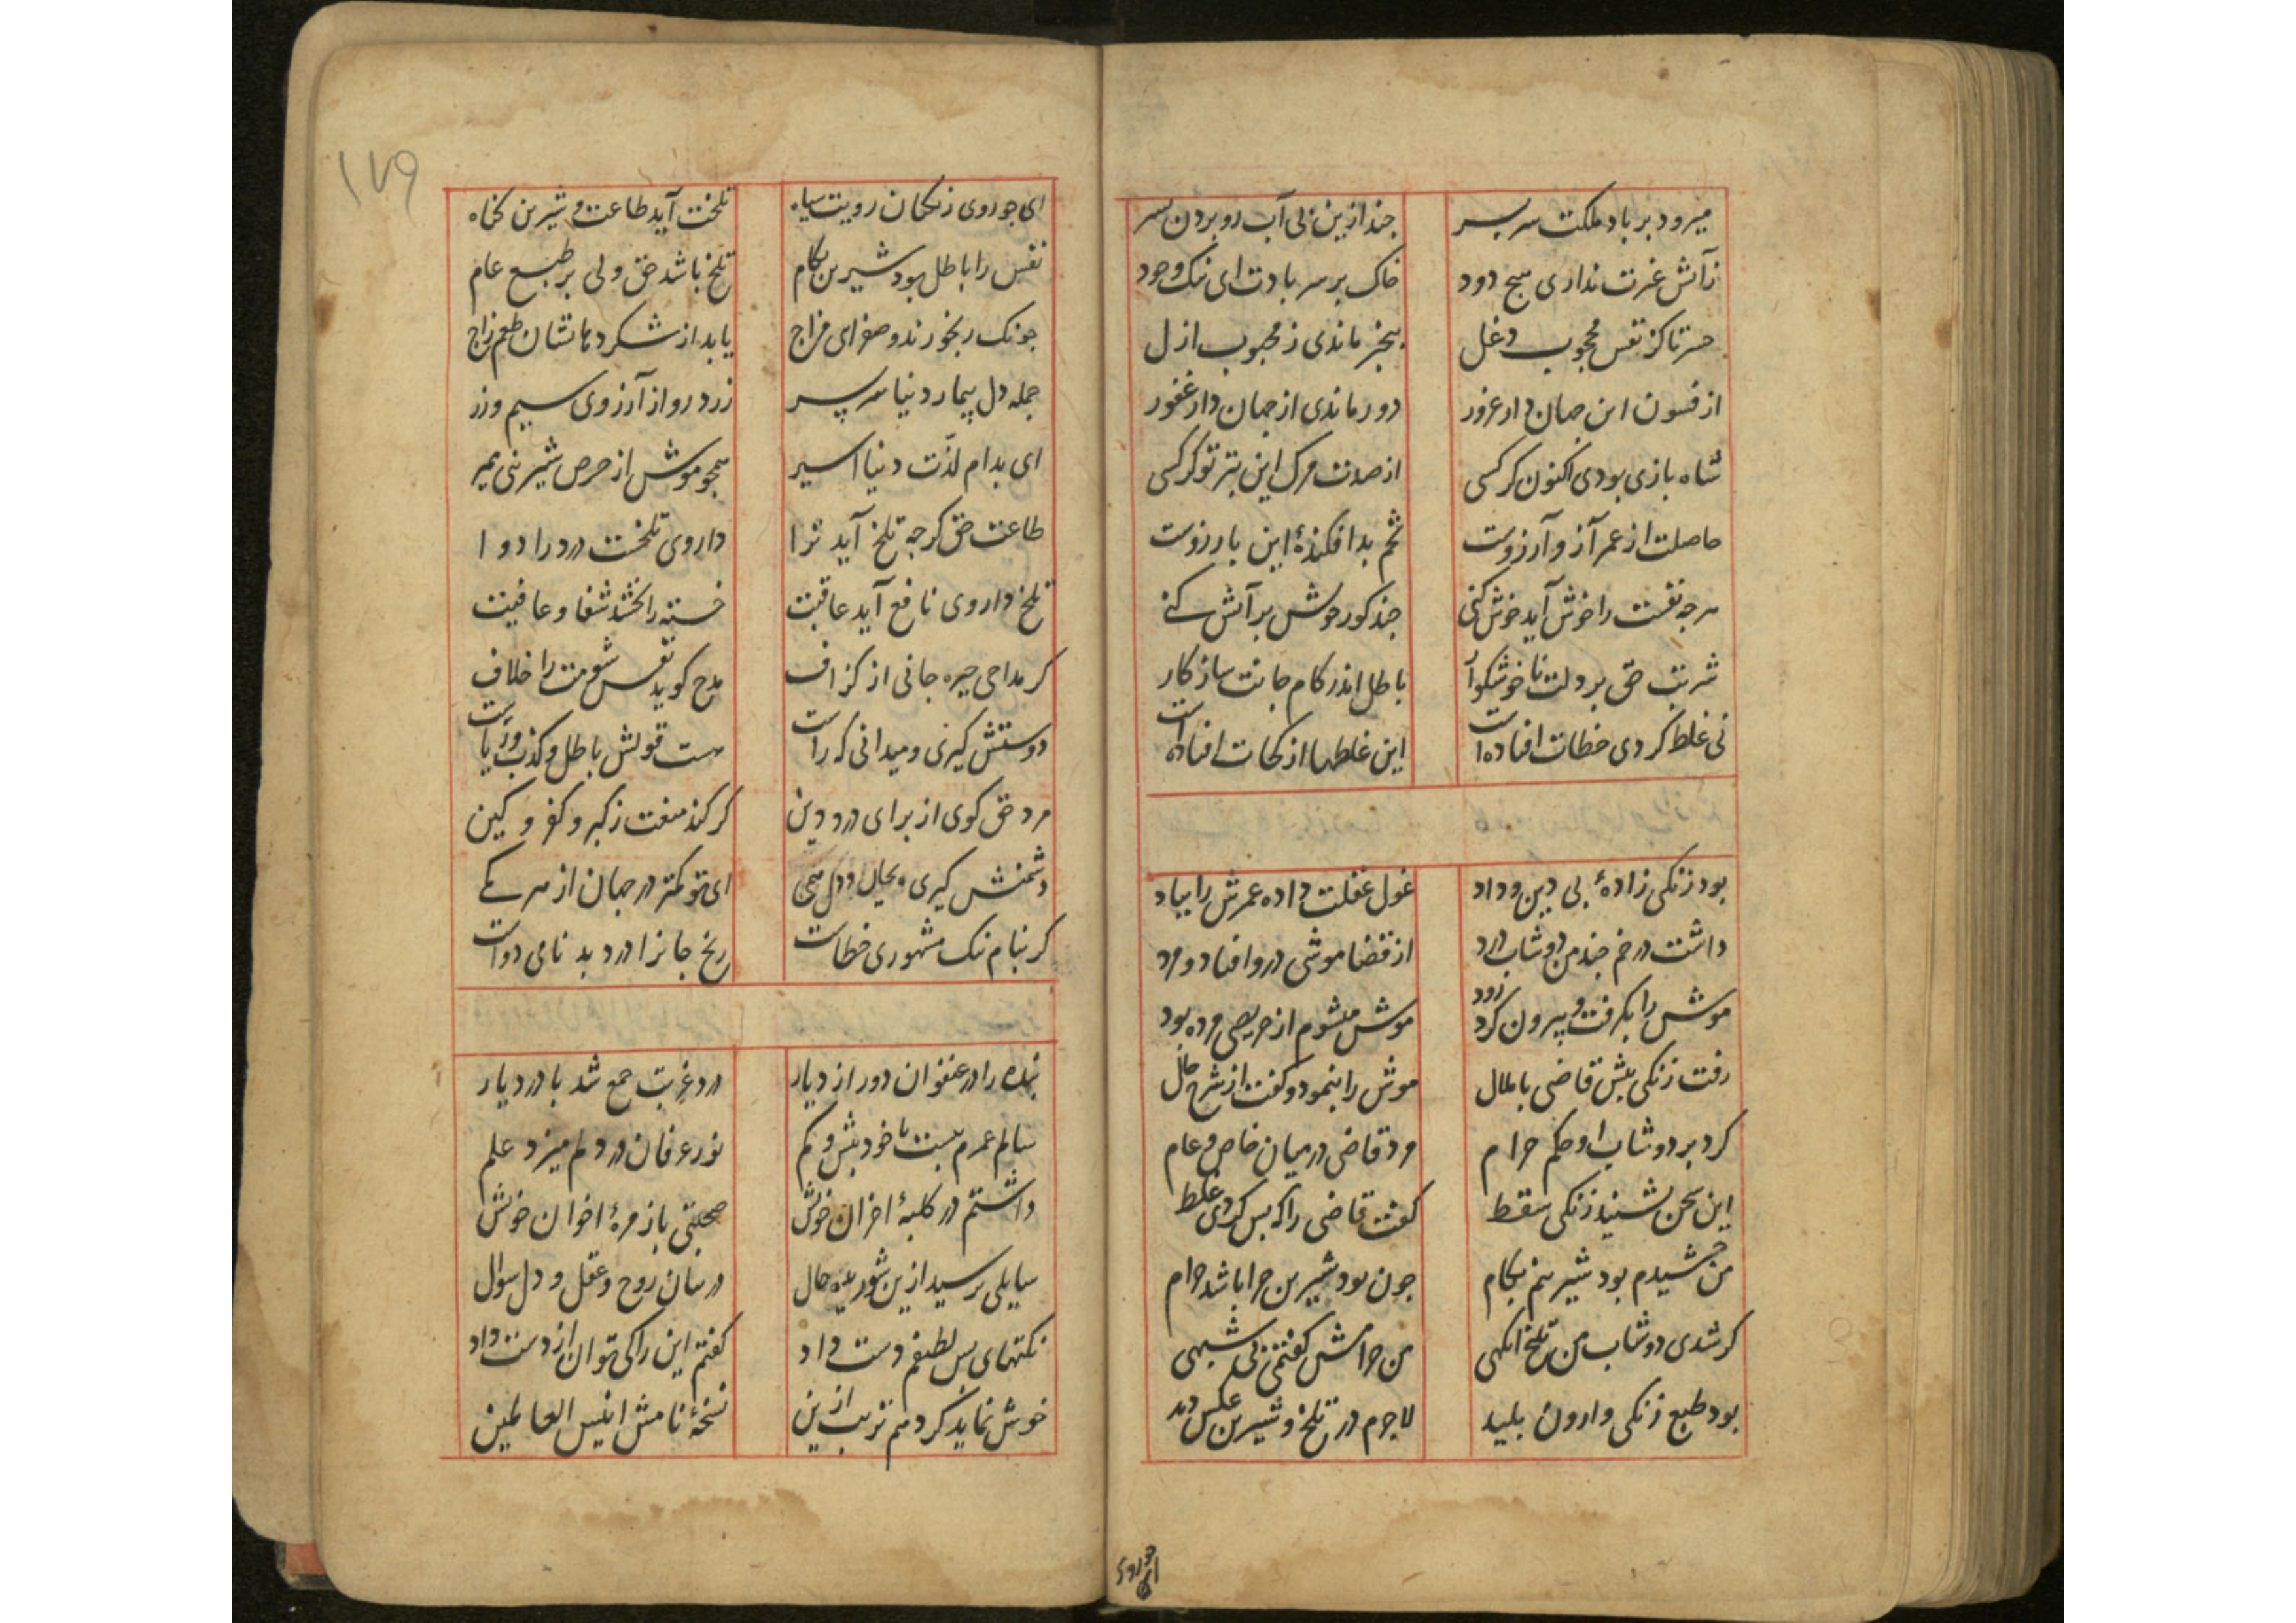 میرود بر باد ملکت سر بسر
چند ازین بی آب رو بردن بسر
زآتش غیرت نداری هیچ دود
خاک بر سر بادت ای ننک وجود
حسرتا کز نفس محجوب دغل
بیخبر ماندی ز محبوب ازل
از فسون این جهان دار غرور
دور ماندی از جهان دار غفور
شاه بازی بودی اکنون کرکسی
از صدت مرک این بتر تو کرکسی
حاصلت از عمر آز و آرزوست
تخم بد افکندهٔ این بار زوست
هرجه نفست را خوش آید خوش کنی
جند کور خوش بر آتش کنے
شربت حق بر دلت ناخوشکوار
باطل اندر کام جانت سازکار
نی غلط کردی خطات افتاده است
این غلطها از کجات افتاده است
بود زنکی زادهٔ بی دین و داد
غول غفلت داده عمرش را بباد
داشت در خم جند من دوشاب درد
از قضا موشی درو افتاد و مرد
موش را بکرفت و بیرون کرد زود
موش میشوم از حریصی مرده بود
رفت زنکی پیش قاضی با ملال
موش را بنمود و کفت از شرح حال
کرد بر دوشاب او حکم حرام
مرد قاضی در میان خاص و عام
این سخن بشنید زنکی سقط
کفت قاضی را که بس کردی غلط
من چشیدم بود شیرینم بکام
جون بود شیرین جرا باشد حرام
کر شدی دوشاب من تلخ آنکهی
من حرامش کفتمی بی شبهی
بود طبع زنکی وارون بلید
لاجرم در تلخ و شیرین عکس دید
ای جو روی
ای جو روی زنکیان رویت سیاه
تلخت آید طاعت و شیرین کناه
نفس را باطل بود شیرین بکام
تلخ باشد حق ولی بر طبع عام
جونک رنجورند و صفرای مزاج
یابد از شکر دهانشان طعم زاج
جمله دل بیمار دنیا سر بسر
زرد رو از آرزوی سیم و زر
ای بدام لذّت دنیا اسیر
همجو موش از حرص شیرینی بمیر
طاعت حق کرجه تلخ آید ترا
داروی تلخست درد را دوا
تلخ داروی نافع آید عاقبت
خسته را بخشد شفا و عافیت
کر مداحی خیره جانی از کزاف
مدح کوید نفس شومت را خلاف
دوستش کیری و میدانی که راست
هست قولش باطل و کذب و ریاست
مرد حق کوی از برای درد دین
کر کند منعت ز کبر و کفر و کین
دشمنش کیری
ای تو کمتر در جهان از هر یکے
کر بنام ننک مشهوری خطاست
رنج جانرا درد بد نامی دواست
بنده را در عنفوان دور از دیار
درد غربت جمع شد با درد یار
سالم عمرم بیست تا خود بیش و کم
نور عرفان در دلم میزد علم
داشتم در کلبهٔ احزان خویش
صحبتی با زمرهٔ اخوان خویش
سایلی پرسید ازین شوریده حال
در بیان روح و عقل و دل سوال
نکتهای بس لطیفم دست داد
کفتم این را کی توان از دست داد
خوش نماید کردهم ترتیب ازین
نسخهٔ نامش انیس العالمین
۱۷۹